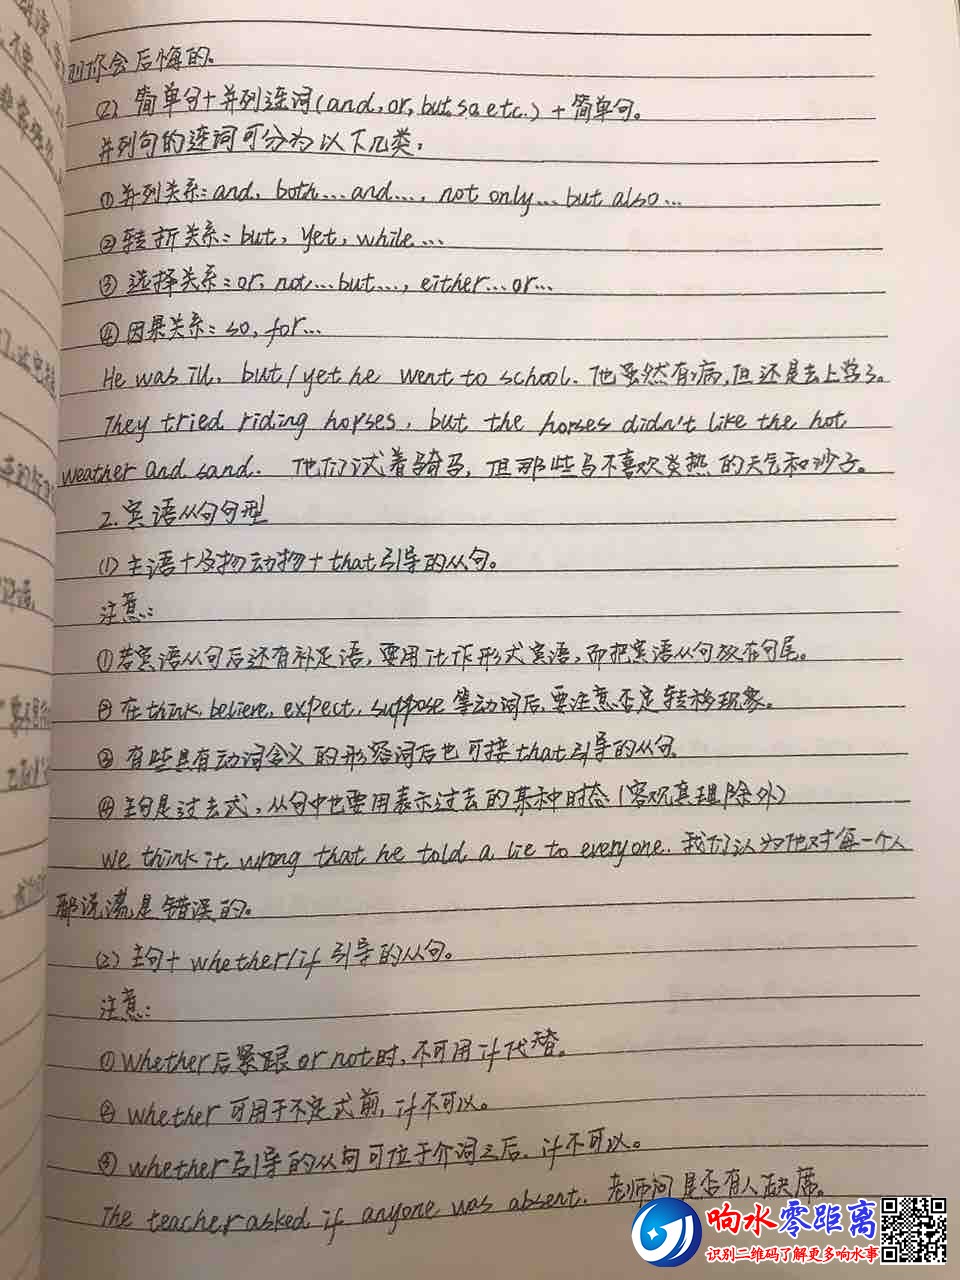 则你会后悔的。
(2) 简单句+并列连词(and, or, but, so etc.) + 简单句。
并列句的连词可分为以下几类：
①并列关系：and, both...and..., not only... but also...
②转折关系：but, yet, while...
③选择关系：or, not...but..., either...or...
④因果关系：so, for...
He was ill, but/yet he went to school. 他虽然有病,但还是去上学了。
They tried riding horses, but the horses didn't like the hot
weather and sand. 他们试着骑马,但那些马不喜欢炎热的天气和沙子。
2.宾语从句句型
(1)主语+及物动物+that引导的从句。
注意：
①若宾语从句后还有补足语,要用it作形式宾语,而把宾语从句放在句尾。
②在think, believe, expect, suppose等动词后,要注意否定转移现象。
③有些具有动词含义的形容词后也可接that引导的从句.
④主句是过去式,从句中也要用表示过去的某种时态(客观真理除外)
We think it wrong that he told a lie to everyone. 我们认为他对每一个人
都说谎是错误的。
(2)主句+ whether/if 引导的从句。
注意：
①whether后紧跟or not时,不可用if代替。
②whether可用于不定式前,if不可以。
③whether引导的从句可位于介词之后,if不可以。
The teacher asked if anyone was absent. 老师问是否有人缺席。
响水零距离
识别二维码了解更多响水事